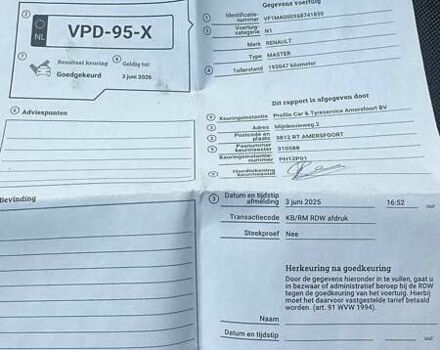 Gegevens voertuig
2
NL
VPD-95-X
Identificatie-
nummer VF1MA000X68741850
Voertuig-
categorie N1
Merk RENAULT
Type MASTER
Tellerstand 193047 kilometer
7 Resultaat keuring
Goedgekeurd
8 Geldig tot
3 juni 2026
6 Adviespunten
Dit rapport is afgegeven door
Keuringsinstantie Profile Car & Tyreservice Amersfoort BV
Adres Mijnbouwweg 2
Postcode en
plaats 3812 RT AMERSFOORT
Pasnummer
keurmeester 310588
Keuringsinstantie-
nummer PH12P01
Handtekening
keurmeester
Bevinding
3 Datum en tijdstip
afmelding 3 juni 2025 16:52 uur
Transactiecode KB/RM RDW afdruk
Steekproef Nee
Herkeuring na goedkeuring
Door de gegevens hieronder in te vullen, gaat u
in bezwaar of administratief beroep bij de RDW
tegen de goedkeuring van het voertuig. Hierbij
moet het daarvoor vastgestelde tarief betaald
worden. (art. 91 WVW 1994).
Naam
Datum en tijdstip uur